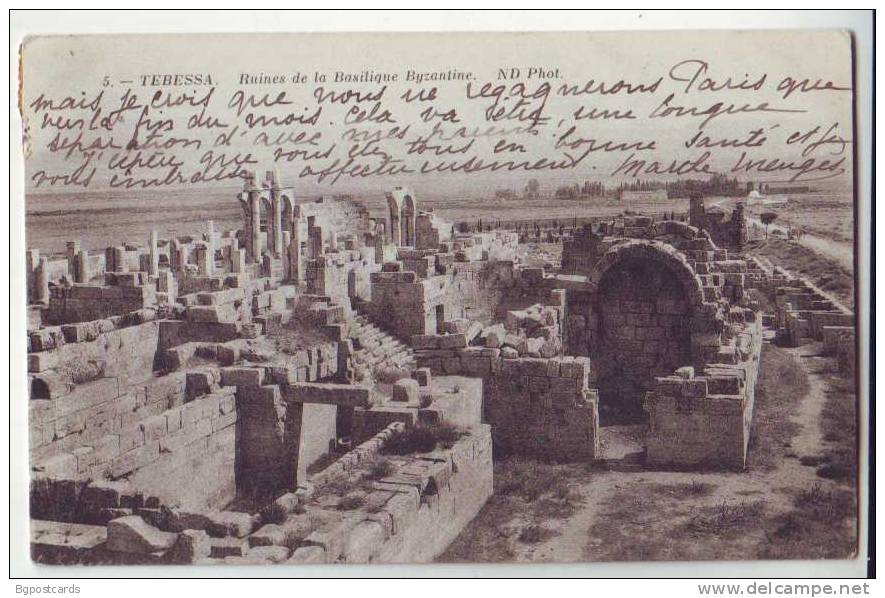 5. — TEBESSA. Ruines de la Basilique Byzantine. ND Phot.
mais je crois que nous ne regagnerons Paris que
vers la fin du mois. Cela va être une longue
séparation d'avec mes parents.
J'espère que vous êtes tous en bonne santé et je
vous embrasse affectueusement. Marthe
Bgpostcards
www.delcampe.net